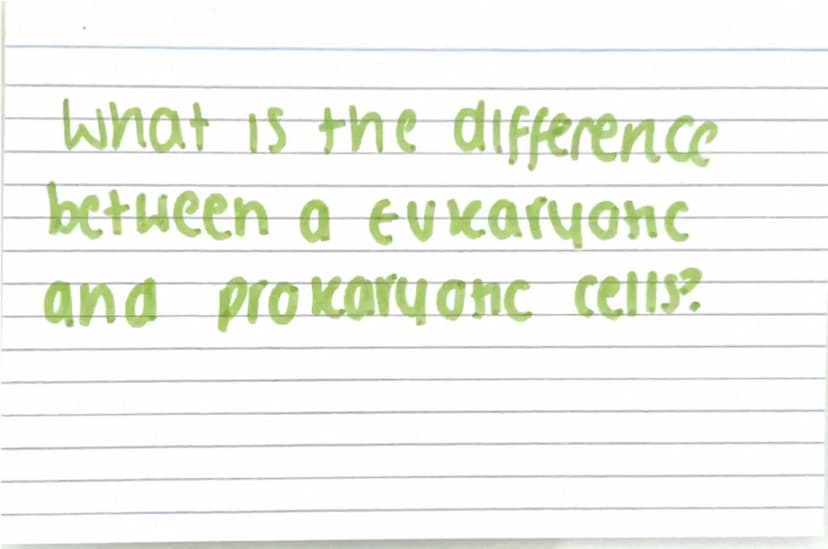 What is the difference
between a eukaryotic
and prokaryotic cells?